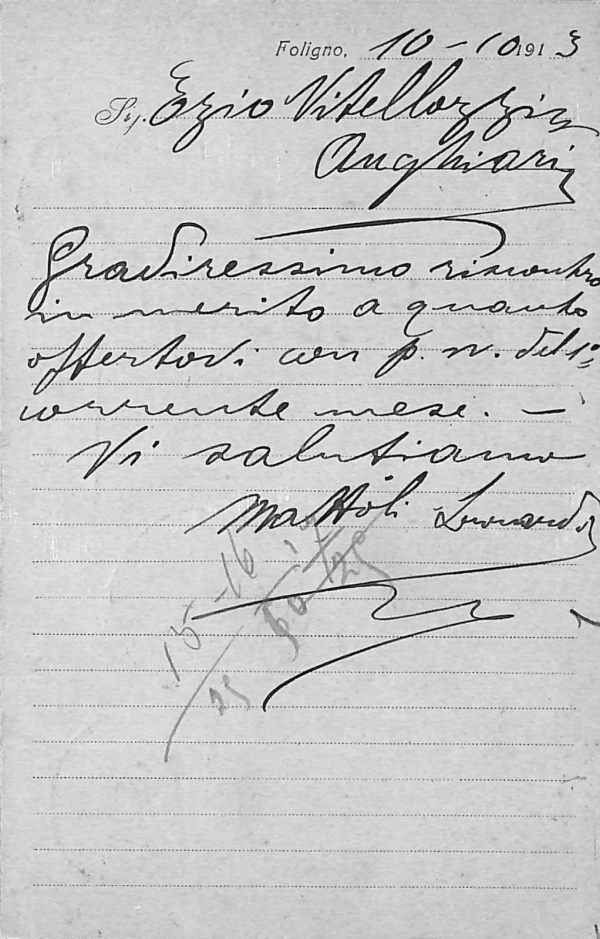 Foligno, 10-10 1913
Sig. Ezio Vitellozzi
Anghiari
Gradiressimo riscontro
in merito a quanto
offertovi con p. n. del 1°
corrente mese. —
Vi salutiamo
Mattoli Leonardo
15-16
25